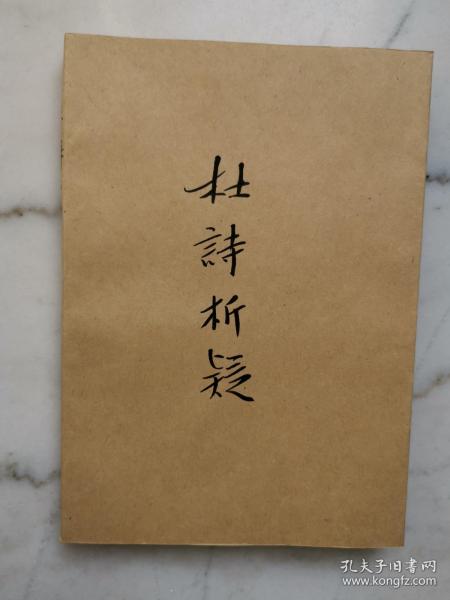 杜詩析疑
孔夫子旧书网
www.kongfz.com